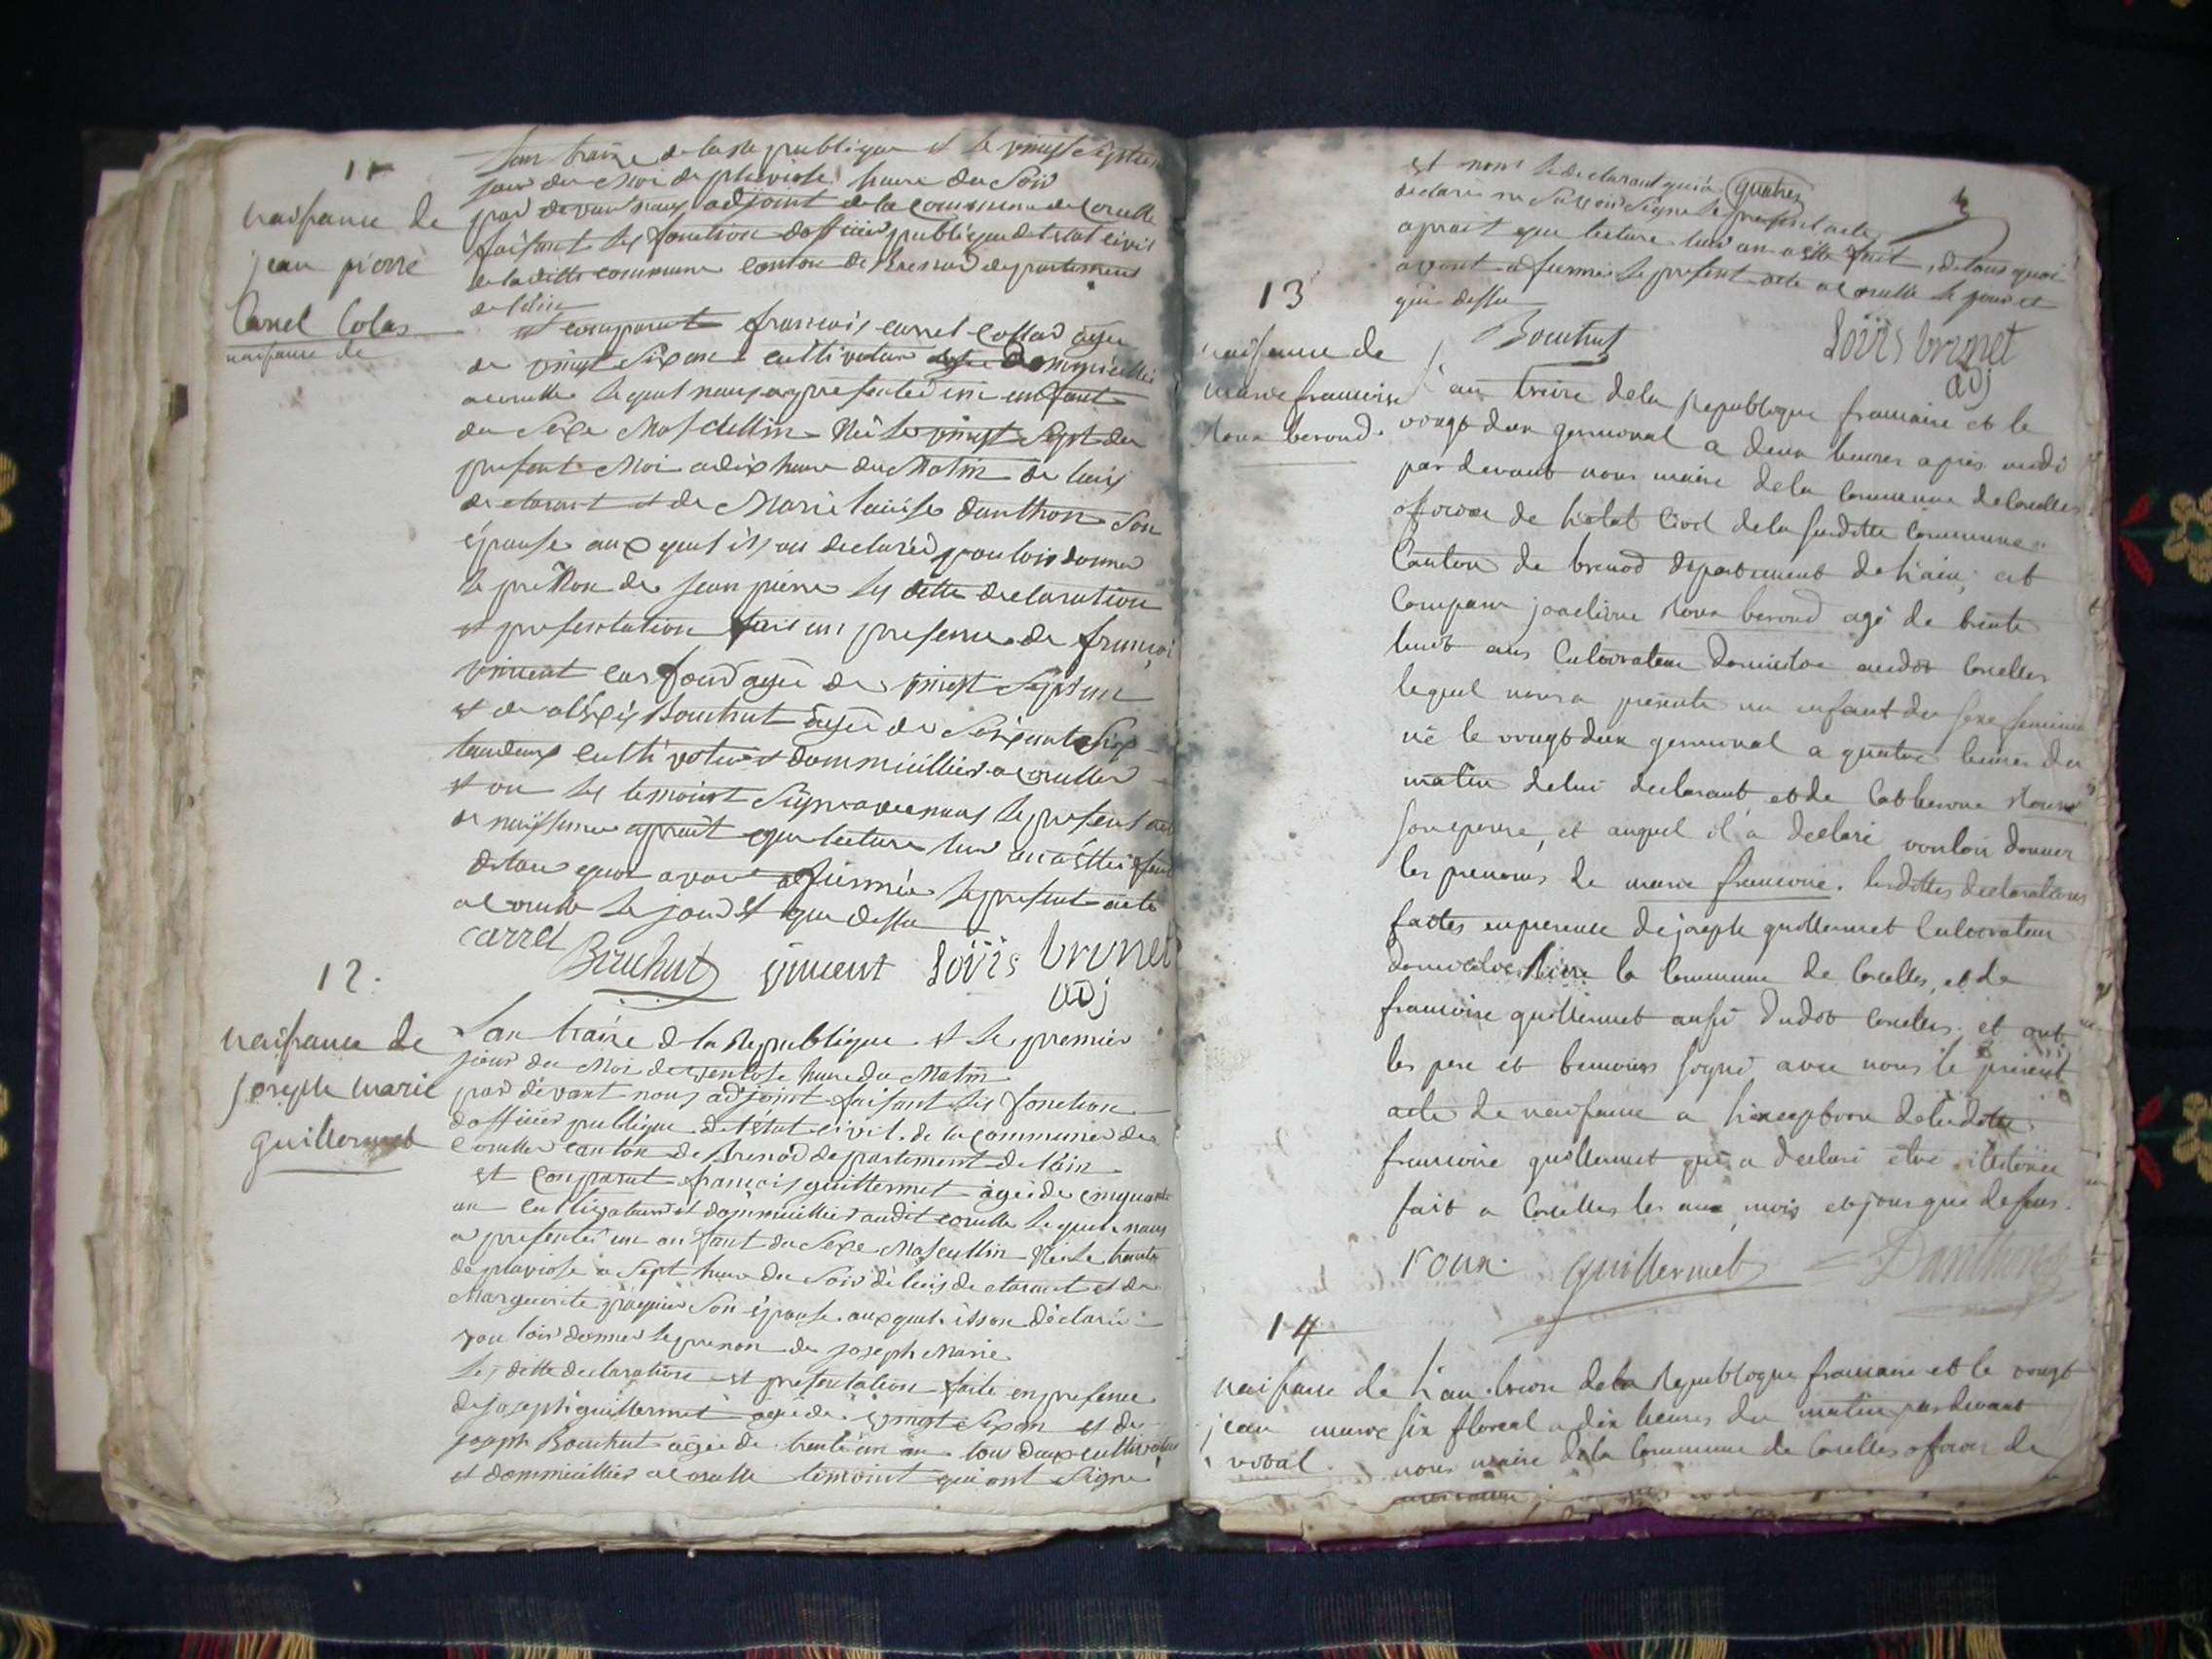 11
naissance de
jean pierre
Carrel Colas
naissance de
Lan traize de la Republique et le vingt Septieme
jour du Moi de pluviose heure du Soir
par devant nous adjoint de la Commune de Corcelle
faisant les fonction dofficier publique de letat civil
de la ditte commune canton de Brenod departement
de lain
est comparut francois carrel Collas agee
de vingt Six ans cultivateur dommicillie
a corcelle lequel nous a presentee une enfant
du Sexe Masculin Nee le vingt Sept du
present Moi a dix heure du Matin de luis
declarant et de Marie Louise danthon Son
épouse auxquel ils on declarée vouloir donner
le preNom de jean pierre les ditte declaration
et presentation fait en presence de francoi
vincent agée de vingt Sept an
et de alexis Bouchut agée de Soixante Six
tou deux cultivoteur et dommicillier a corcelle
et on les temoint Signe avec nous le present acte
de naissence aprait que lecture leur an a ettee fait
de tou quoi avon afirmée le present acte
a Corcelle le jour et que dessu
carrel Bouchut vincent Loüis brunet
adj
12.
naissance de
joseph marie
guillermet
Lan traize d la Republique et le premier
jour du Moi de ventose heure du Matin
par dévant nous adjoint faisant les fonction
dofficier publique de létat civil de la commune de
Corcelle canton de Brenod departement de lain
est Comparut francois guillermet agée de cinquante
an cultivateur et dommicillier audit corcelle lequel nous
a presentée un anfant du Sexe Masculin Née le trante
de pluviose a Sept heure du Soir de luis declarant et de
Marguerite Son épouse auxquel ils on déclarée
vouloir donner le prenon de joseph Marie
les ditte declaration et presentation faite en presence
de joseph guillermet agée de vingt Six an et de
joseph Bouchut agée de trante un an tou deux cultivateur
et dommicillier a corcelle temoint qui ont Signe
et non le declarant qui a
declaré ne Savoir Signe le present acte
aprait que lecture leur an a ette fait, de tous quoi
avont afirmée le present acte a Corcelle le jour et
que dessu
Bouchut Loüis brunet
adj
13
naissance de
marie francoise
Roux berond.
L'an treize de la Republique francaise et le
vingt deux germinal a deux heures après midi
par devant nous maire de la Commune de Corcelles
officier de l'etat Civil de la susditte Commune
Canton de brenod departement de l'ain, est
Comparu Roux berond agé de trente
huit ans Cultivateur domicilie audit Corcelles
lequel nous a presenté un enfant du sexe feminin
né le vingt deux germinal a quatre heures du
matin de lui declarant et de Catherine Roux
son epouse, et auquel il a declaré vouloir donner
les prenoms de marie francoise. lesdittes declarations
faites en presence de joseph guillermet Cultivateur
domicilie la Commune de Corcelles, et de
francoise guillermet aussi dudit Corcelles. et ont
les pere et temoins signé avec nous le present
acte de naissance a l'exception de laditte
francoise guillermet qui a declaré etre illetrée
fait a Corcelles les an, mois et jour que dessus.
roux. guillermet Danthon
14
naissance de
jean marie
vival.
L'an treize de la Republique francaise et le vingt
six floreal a dix heures du matin pardevant
nous maire de la Commune de Corcelles officier de